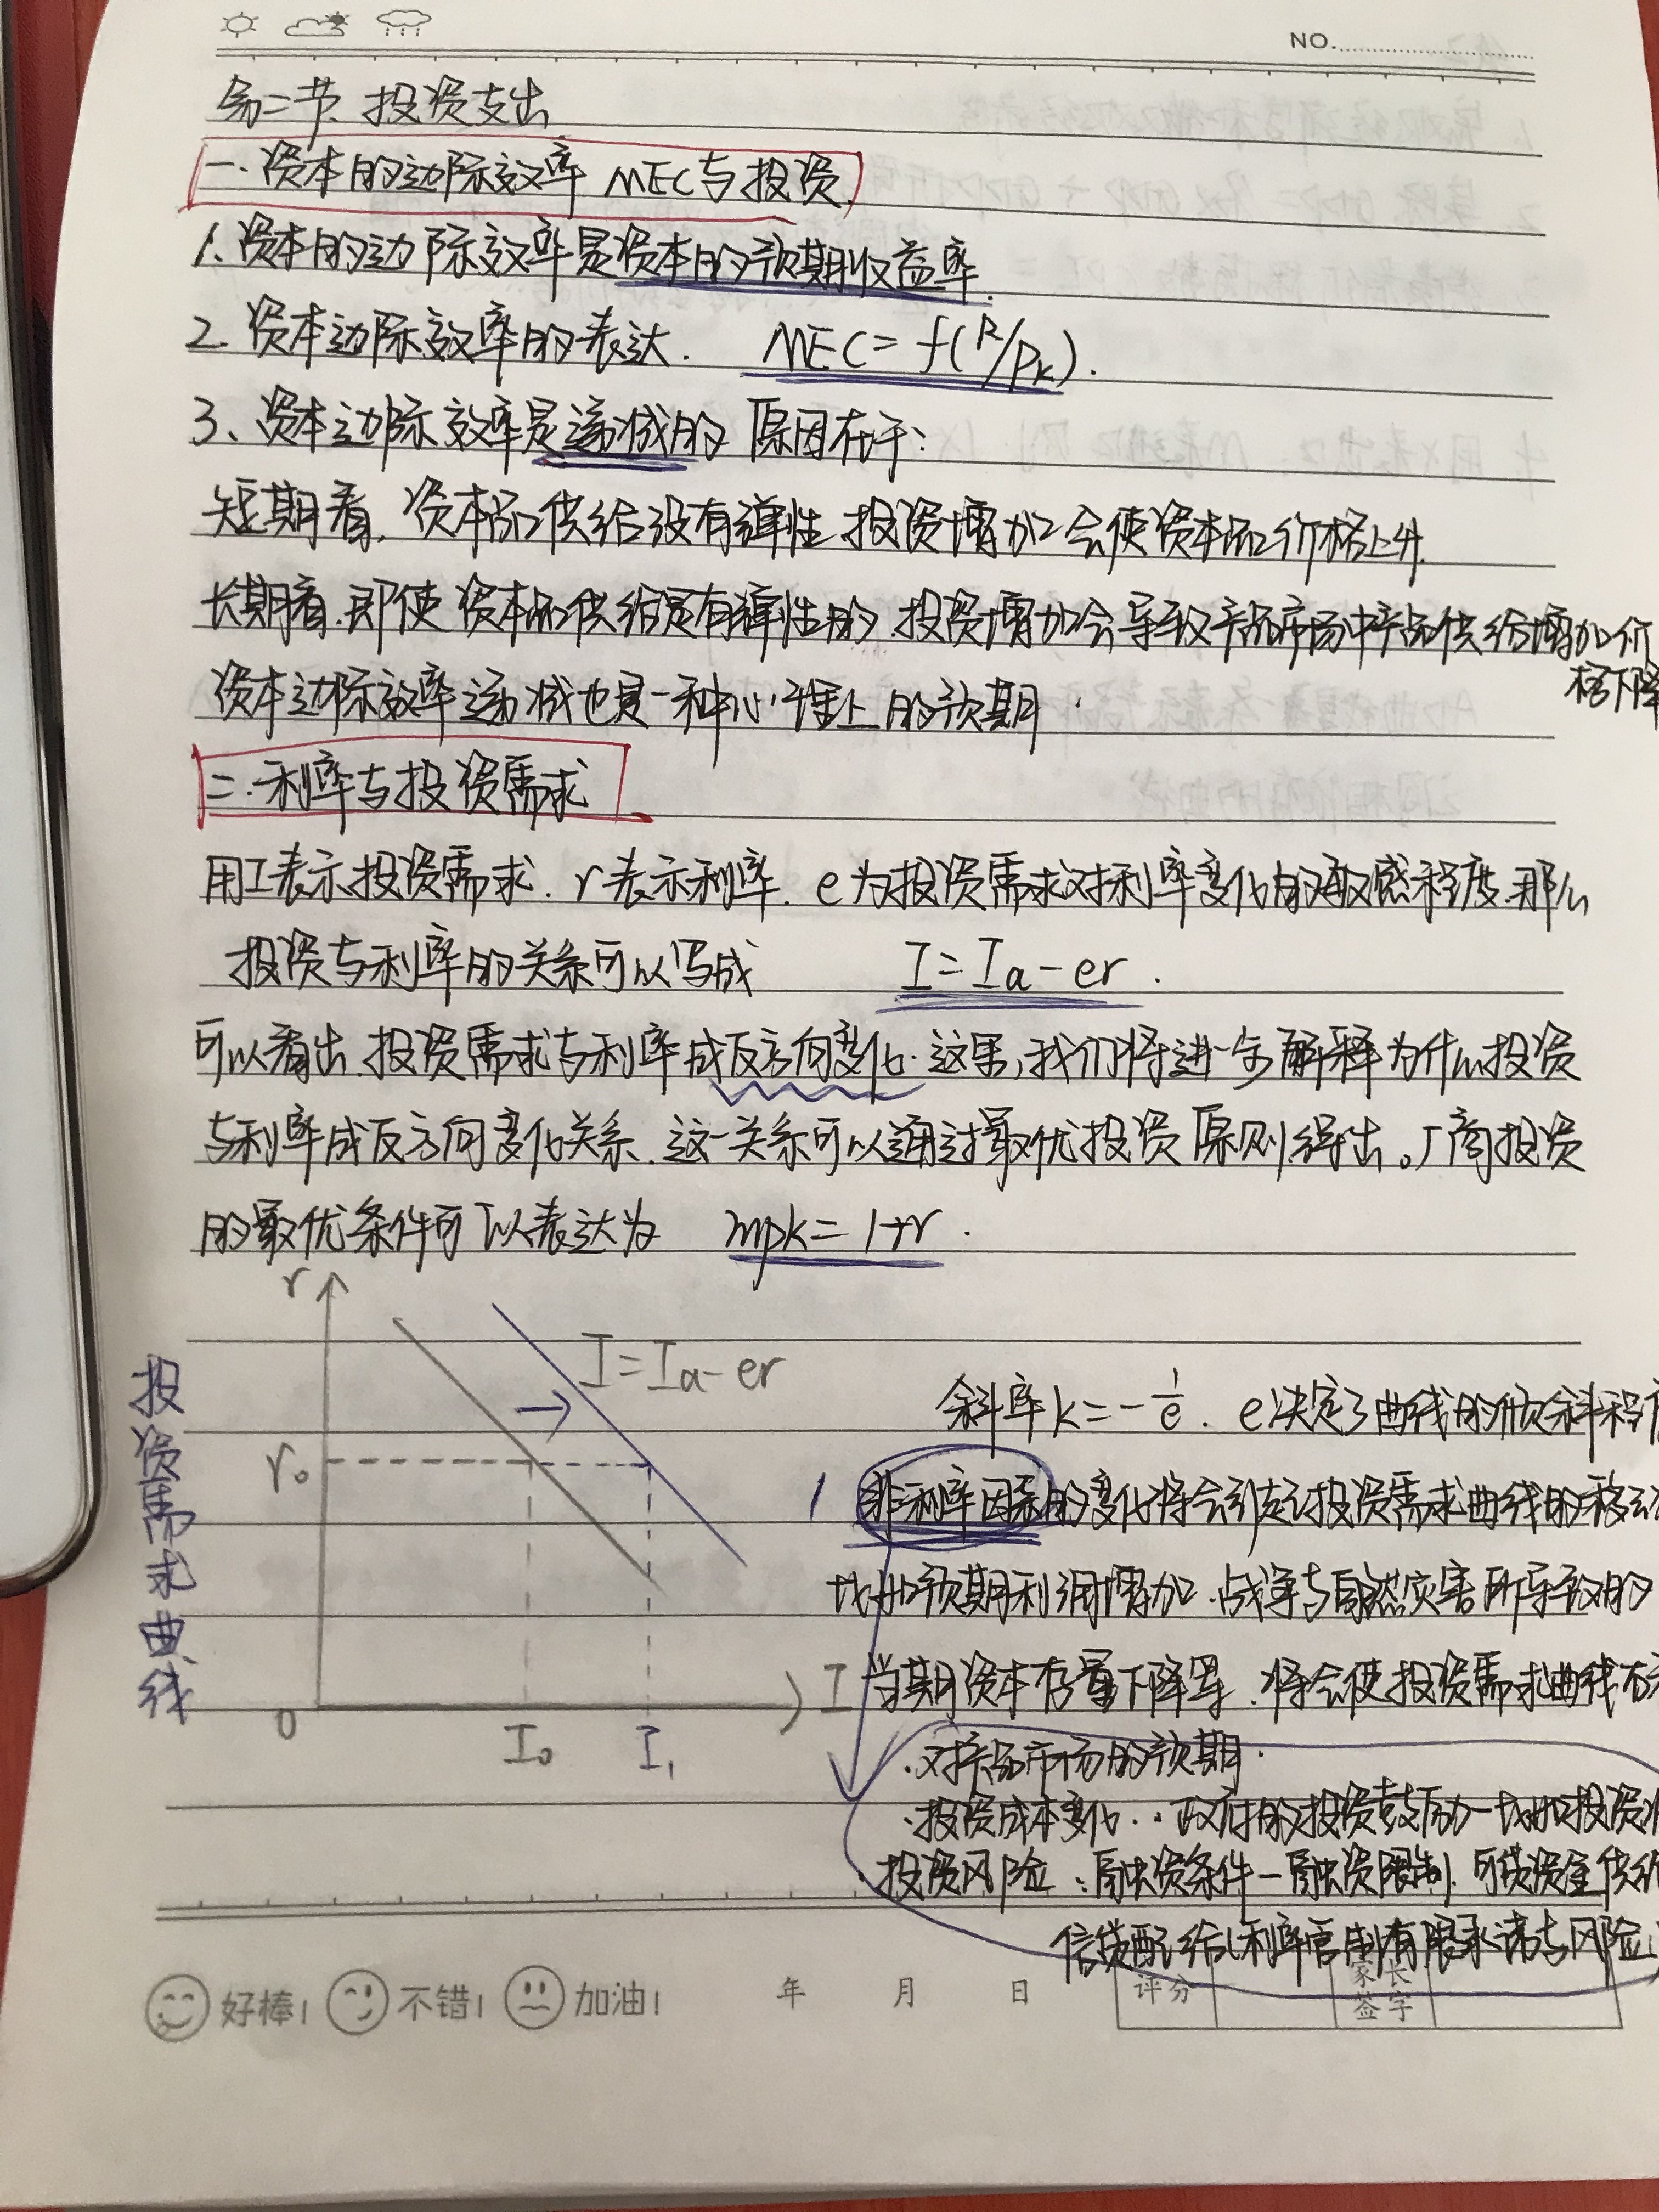 NO.
第二节 投资支出
一. 资本的边际效率 MEC与投资.
1. 资本的边际效率是资本的预期收益率.
2. 资本边际效率的表达. MEC = f(R/Pk).
3、资本边际效率是递减的 原因在于:
短期看, 资本品供给没有弹性 投资增加会使资本品价格上升.
长期看. 即使资本品供给是有弹性的, 投资增加会导致产品市场中产品供给增加价
格下降
资本边际效率递减也是一种心理上的预期
二. 利率与投资需求
用I表示投资需求. r表示利率. e为投资需求对利率变化的敏感程度. 那么
投资与利率的关系可以写成 I = Ia - er .
可以看出 投资需求与利率成反方向变化. 这里, 我们将进一步解释为什么投资
与利率成反方向变化关系. 这一关系可以通过最优投资原则得出。厂商投资
的最优条件可以表达为 mpk = 1+r .
r
I = Ia - er
r₀
0
I₀
I₁
I
投资需求曲线
斜率 k = -1/e . e决定了曲线的倾斜程
1 非利率因素的变化将会引起投资需求曲线的移
比如预期利润增加. 战争与自然灾害所导致的
当期资本存量下降等. 将会使投资需求曲线
·对产品市场的预期·
·投资成本变化·. 政府的投资鼓励—比如投资
投资风险. 融资条件—融资限制. 可贷资金供给
信贷配给(利率管制有限承诺与风险
好棒! 不错! 加油! 年 月 日 评分 家长签字